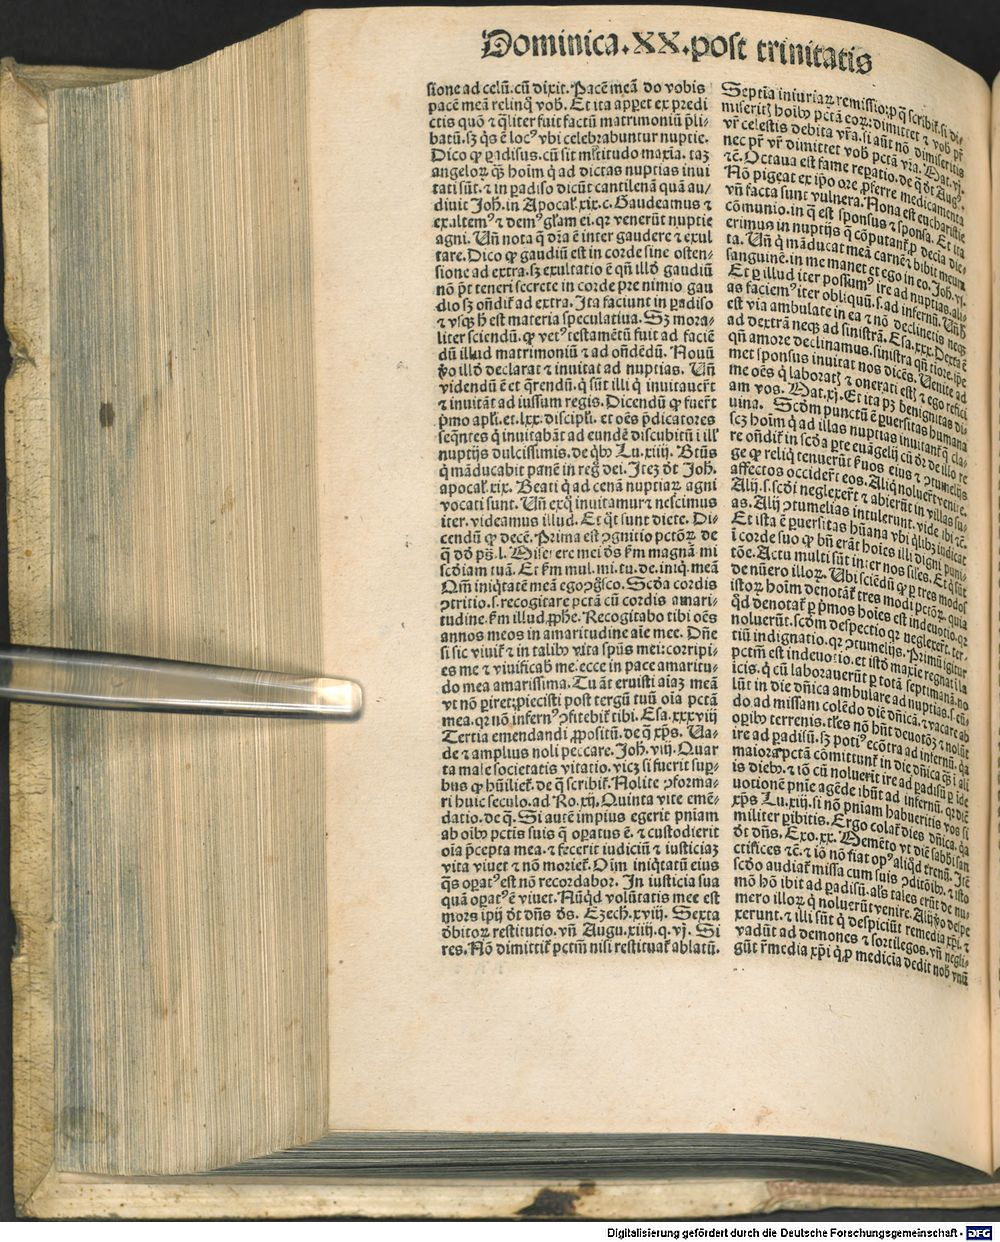 Dominica.XX.post trinitatis
sione ad celū. cū dixit. Pacē meā do vobis
pacē meā relinq̄ vob̄. Et ita appet ex predi
ctis quō ⁊ q̄liter fuit factū matrimoniū p̄li-
batū. sꝫ q̄s ē locꝰ vbi celebrabuntur nuptie.
Dico ꝙ ꝑadisus. cū sit ml̄titudo maxīa. taꝫ
angeloꝝ q̄ꝫ hoīm q̄ ad dictas nuptias inui
tati sūt. ⁊ in ꝑadiso dicūt cantilenā quā au/
diuit Joh̄. in Apocal̄. xix. c. Gaudeamus ⁊
exaltemꝰ ⁊ demꝰ gl̄am ei. qꝛ venerūt nuptie
agni. Uñ nota q̄ dr̄a ē inter gaudere ⁊ exul
tare. Dico ꝙ gaudiū est in corde sine osten-
sione ad extra. sꝫ exultatio ē qn̄ illd̄ gaudiū
nō pt̄ teneri secrete in corde pre nimio gau
dio sꝫ on̄dit̄ ad extra. Ita faciunt in ꝑadiso
⁊ vsqꝫ h̄ est materia speculatiua. Sꝫ mora-
liter sciendū. ꝙ vetꝰ testamētū fuit ad faciē
dū illud matrimoniū ⁊ ad on̄dēdū. Nouū
v̄o illd̄ declarat ⁊ inuitat ad nuptias. Uñ
videndū ē et q̄rendū. q̄ sūt illi q̄ inuitauer̄t
⁊ inuitāt ad iussum regis. Dicendū ꝙ fuer̄t
p̄mo apl̄i. et. lxx. discipl̄i. et oēs p̄dicatores
seq̄ntes q̄ inuitabāt ad eundē discubitū i ill̄
nuptijs dulcissimis. de qͥbꝫ Lu. xiiij. Bt̄us
q̄ māducabit panē in reḡ dei. Iteꝫ d̄t Joh̄.
apocal̄. xix. Beati q̄ ad cenā nuptiaꝝ agni
vocati sunt. Uñ exq̄ inuitamur ⁊ nescimus
iter. videamus illud. Et q̄t sunt diete. Di-
cendū ꝙ decē. Prima est ꝯgnitio pctōꝝ de
q̄ dd̄ ps̄. l. Miserere mei d̄s km̄ magnā mi
scd̄iam tuā. Et km̄ mul. mi. tu. de. iniq̄. meā
Qm̄ iniq̄tatē meā ego ꝯgͦsco. Scd̄a cordis
ꝯtritio. s. recogitare pctā cū cordis amari-
tudine. km̄ illud ꝓphe. Recogitabo tibi oēs
annos meos in amaritudine aīe mee. Dn̄e
si sic viuit̄ ⁊ in talibꝫ vita spūs mei: corripi-
es me ⁊ viuificab̄ me. ecce in pace amaritu-
do mea amarissima. Tu āt eruisti aīaꝫ meā
vt nō ꝑiret: ꝓiecisti post tergū tuū oīa pctā
mea. qꝛ nō infernꝰ ꝯfitebit̄ tibi. Esa. xxxviij
Tertia emendandi ꝓpositū. de q̄ xp̄s. Ua-
de ⁊ amplius noli peccare. Joh̄. viij. Quar
ta male societatis vitatio. vicꝫ si fuerit suꝑ-
bus ꝙ hūiliet̄. de q̄ scribit̄. Nolite ꝯforma-
ri huic seculo. ad Ro. xij. Quinta vite emē-
datio. de q̄. Si autē impius egerit pn̄iam
ab oībꝫ pctis suis q̄ oꝑatus ē. ⁊ custodierit
oīa p̄cepta mea. ⁊ fecerit iudiciū ⁊ iusticiaꝫ
vita viuet ⁊ nō moriet̄. Oīm iniq̄tatū eius
q̄s oꝑatꝰ est nō recordabor. In iusticia sua
quā oꝑatꝰ ē viuet. Nūqd̄ volūtatis mee est
mors ipij d̄t dn̄s d̄s. Ezech̄. xviij. Sexta
d̄bitoꝝ restitutio. vn̄ Augu. xiiij. q. vj. Si
res. Nō dimittit̄ pctm̄ nisi restituat̄ ablatū.
Septīa iniuriaꝝ remissio: ꝓ q̄ scribit̄. si di-
miseritꝫ hoībꝫ pctā eoꝝ: dimittet ⁊ vob̄ pr̄
vr̄ celestis debita vr̄a. si aūt nō dimiseritis
nec pr̄ vr̄ dimittet vob̄ pctā vr̄a. Mat. vj.
⁊c̄. Octaua est fame reꝑatio. de q̄ d̄t Augꝰ.
Nō pigeat ex ip̄o ore ꝓferre medicamenta
vn̄ facta sunt vulnera. Nona est eucharistie
cōmunio. in q̄ est sponsus ⁊ sponsa. Et ita
erimus in nuptijs q̄ cōputant̄ ꝓ decīa die-
ta. Uñ q̄ māducat meā carnē ⁊ bibit meum
sanguinē. in me manet et ego in eo. Joh̄. vj.
Et ꝑ illud iter possumꝰ ire ad nuptias. ali-
as faciemꝰ iter obliquū. s. ad infernū. Uñ h̄
est via ambulate in ea ⁊ nō declinetis neqꝫ
ad dextrā neqꝫ ad sinistrā. Esa. xxx. Dextra ē
qn̄ amore declinamus. sinistra qn̄ tīore. ip̄e
met sponsus inuitat nos dicēs. Uenite ad
me oēs q̄ laboratꝫ ⁊ onerati estꝫ ⁊ ego refici
am vos. Mat. xj. Et ita pꝫ benignitas di-
uina. Scd̄m punctū ē ꝑuersitas humana
scꝫ hoīm q̄ ad illas nuptias inuitant̄ q̄ cla-
re on̄dit̄ in scd̄a ꝑte euāgelij cū d̄r de illo re
ge ꝙ reliq̄ tenuerūt ẜuos eius ⁊ ꝯtumelijs
affectos occider̄t eos. Aliq̄ noluer̄t venire.
Alij. s. scd̄i neglexer̄t ⁊ abierūt in villas su-
as. Alij ꝯtumelias intulerunt. vide ibi ⁊c̄.
Et ista ē ꝑuersitas hūana vbi q̄libꝫ iudicat
ī corde suo ꝙ bn̄ erāt hoīes illi digni puni-
tōe. Actu multi sūt inter nos siīles. Et q̄ sūt
de nūero illoꝝ. Ubi sciēdū ꝙ ꝑ tres modos
istoꝝ hoīm denotāt̄ tres modi pctōꝝ. quia
qd̄ denotat̄ ꝑ p̄mos hoīes est indeuotio. qꝛ
noluerūt. scd̄m despectio qꝛ neglexer̄t. ter-
tiū indignatio. qꝛ ꝯtumelijs. Primū igitur
pctm̄ est indeuotio. et istd̄ maxīe regnat ī la
icis. q̄ cū laborauerūt ꝑ totā septimanā. no
lūt in die dn̄ica ambulare ad nuptias. s. eū-
do ad missam colēdo diē dn̄icā. ⁊ vacare ab
oꝑibꝫ terrenis. tl̄es nō hn̄t deuotōꝫ ⁊ nolūt
ire ad ꝑadisū. sꝫ potiꝰ ecōtra ad infernū. q̄a
maiora pctā cōmittunt̄ in die dn̄ica q̄ꝫ ī ali
is diebꝫ. ⁊ iō cū noluerit ire ad ꝑadisū ꝑ ide
uotionē pn̄ie agēde ibūt ad infernū. qꝛ dīc
xp̄s Lu. xiij. si nō pniam habueritis vos si
militer ꝑibitis. Ergo colat̄ dies dn̄ica. q̄a
d̄t dn̄s. Exo. xx. Memēto vt diē sabbi san
ctifices ⁊c̄. ⁊ iō nō fiat opꝰ aliqd̄ trenū. Itē
scd̄o audiat̄ missa cum suis ꝯditōibꝫ. ⁊ isto
mō hō ibit ad ꝑadisū. al̄s tales erūt de nu-
mero illoꝝ q̄ noluerūt venire. Alij v̄o despe
xerunt. ⁊ illi sūt q̄ despiciūt remedia xp̄i. ⁊
vadūt ad demones ⁊ sortilegos. vn̄ negli-
gūt r̄media xp̄i q̄ ꝓ medicīa dedit nob̄ vnū
Digitalisierung gefördert durch die Deutsche Forschungsgemeinschaft - DFG